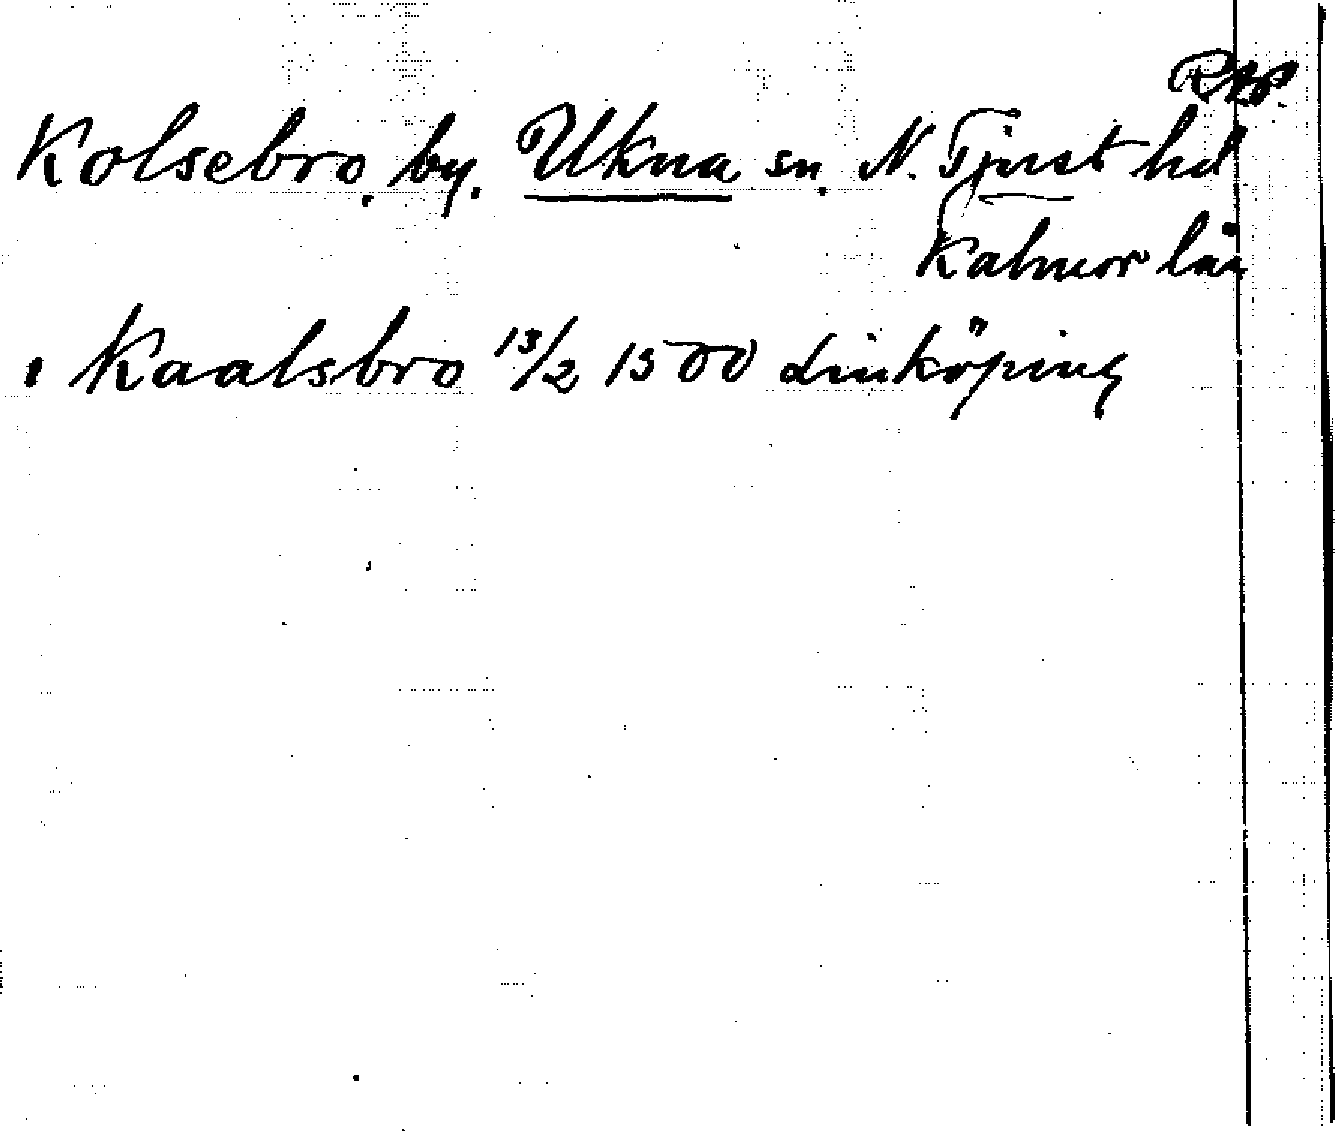 Kolsebro, by. Ukna sn. N. Tjust hd
Kalmar län
Kaalsbro 13/2 1500 Linköping